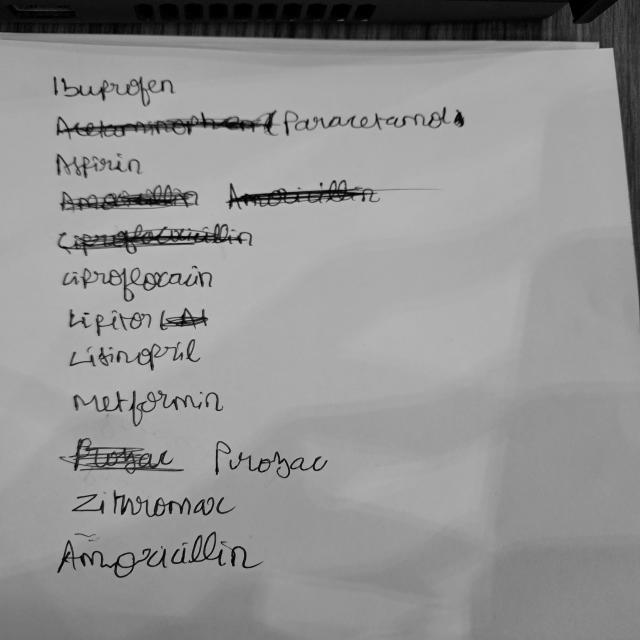 Ibuprofen
Acetaminophen (Paracetamol)
Aspirin
Amoxicillin Amoxicillin
Ciprofloxacillin
Ciprofloxacin
Lipitor (At
Lisinopril
Metformin
Prozac Prozac
Zithromax
Amoxicillin